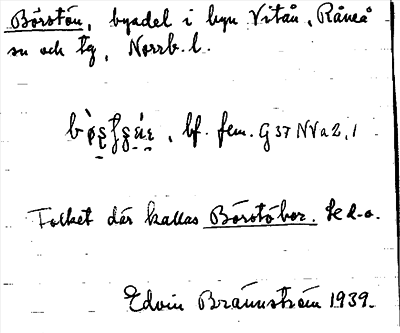 Börstön, byadel i byn Vitån, Råneå
sn och tg, Norrb. l.
bf. fem. G 37 NVa2, 1
Folket där kallas Börstöbor. Se d-o.
Edvin Brännström 1939.